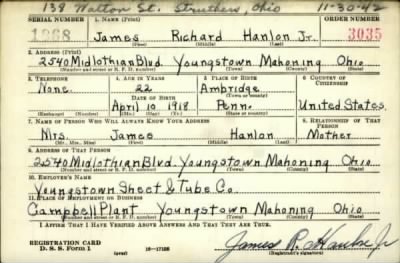 138 Walton St. Struthers, Ohio 11-30-42
SERIAL NUMBER 1. NAME (Print) ORDER NUMBER
1268 James Richard Hanlon Jr. 3035
(First) (Middle) (Last)
2. ADDRESS (Print)
2540 Midlothian Blvd. Youngstown Mahoning Ohio
(Number and street or R. F. D. number) (Town) (County) (State)
3. TELEPHONE 4. AGE IN YEARS 5. PLACE OF BIRTH 6. COUNTRY OF CITIZENSHIP
None. 22 Ambridge
DATE OF BIRTH (Town or county)
April 10 1918 Penn. United States
(Exchange) (Number) (Mo.) (Day) (Yr.) (State or country)
7. NAME OF PERSON WHO WILL ALWAYS KNOW YOUR ADDRESS 8. RELATIONSHIP OF THAT PERSON
Mrs. James Hanlon Mother
(Mr., Mrs., Miss) (First) (Middle) (Last)
9. ADDRESS OF THAT PERSON
2540 Midlothian Blvd. Youngstown Mahoning Ohio
(Number and street or R. F. D. number) (Town) (County) (State)
10. EMPLOYER'S NAME
Youngstown Sheet & Tube Co.
11. PLACE OF EMPLOYMENT OR BUSINESS
Campbell Plant Youngstown Mahoning Ohio
(Number and street or R. F. D. number) (Town) (County) (State)
I AFFIRM THAT I HAVE VERIFIED ABOVE ANSWERS AND THAT THEY ARE TRUE.
REGISTRATION CARD
D. S. S. Form 1 (over) 16-17105 James R. Hanlon Jr
(Registrant's signature)